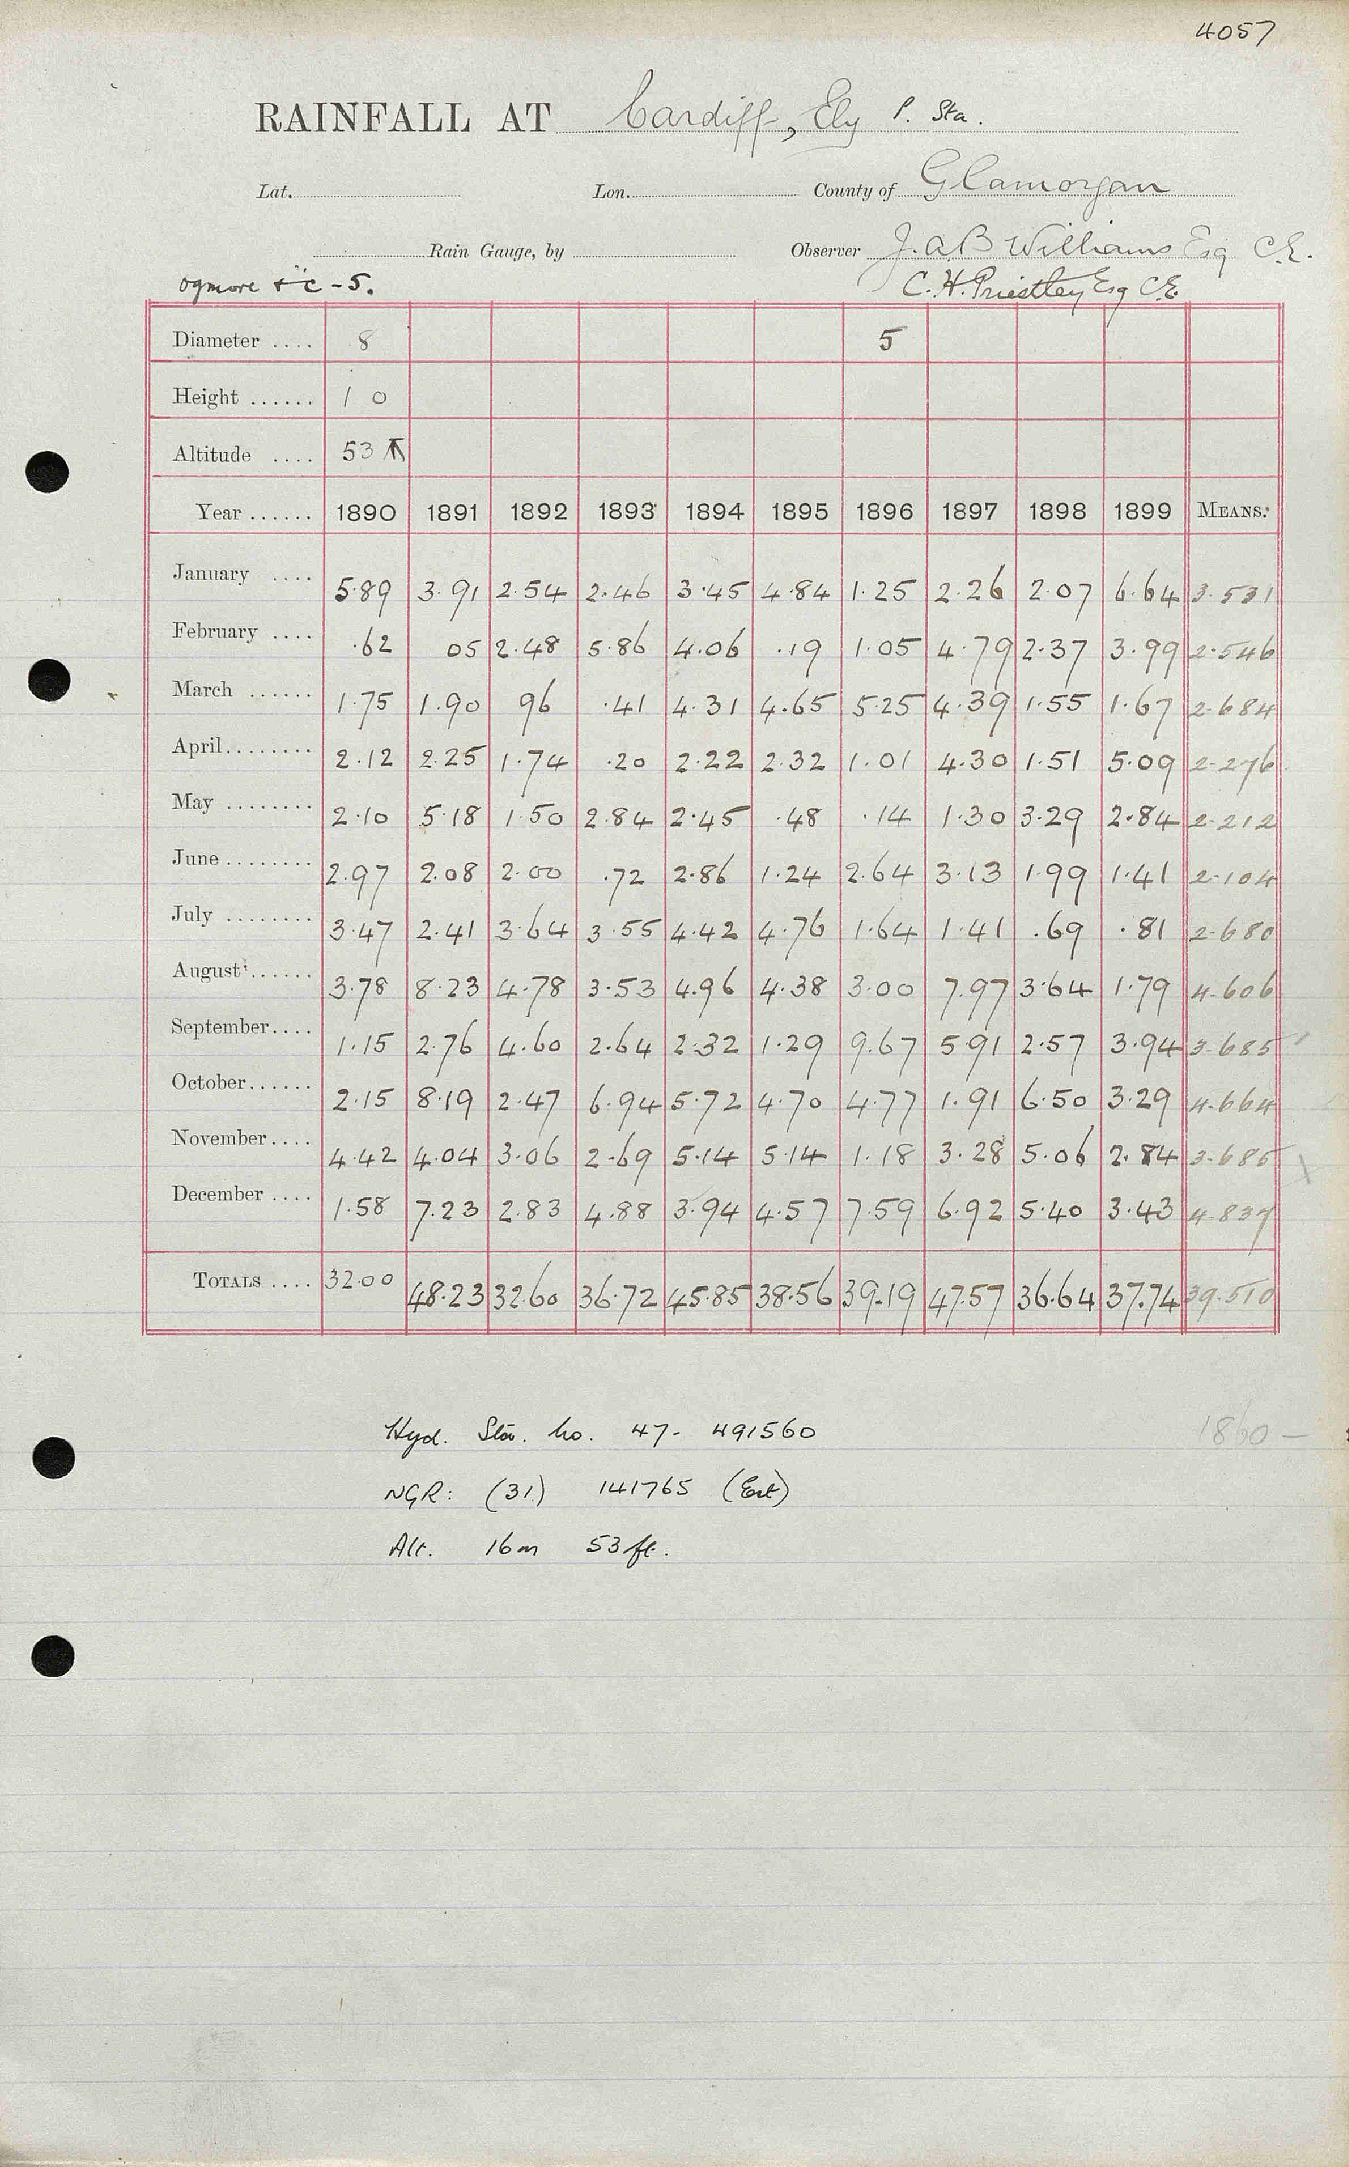 4057
RAINFALL AT Cardiff, Ely P. Sta.
Lat. Lon. County of Glamorgan
Rain Gauge, by Observer J. A. B Williams Esq C.E.
Ogmore &c - 5. C. H. Priestley Esq C.E.
Diameter .... 8 5
Height ...... 1 0
Altitude .... 53
Year ...... 1890 1891 1892 1893 1894 1895 1896 1897 1898 1899 MEANS.
January .... 5.89 3.91 2.54 2.46 3.45 4.84 1.25 2.26 2.07 6.64 3.531
February .... .62 05 2.48 5.86 4.06 .19 1.05 4.79 2.37 3.99 2.546
March ...... 1.75 1.90 96 .41 4.31 4.65 5.25 4.39 1.55 1.67 2.684
April........ 2.12 2.25 1.74 .20 2.22 2.32 1.01 4.30 1.51 5.09 2.276
May ........ 2.10 5.18 1.50 2.84 2.45 .48 .14 1.30 3.29 2.84 2.212
June ........ 2.97 2.08 2.00 .72 2.86 1.24 2.64 3.13 1.99 1.41 2.104
July ........ 3.47 2.41 3.64 3.55 4.42 4.76 1.64 1.41 .69 .81 2.680
August...... 3.78 8.23 4.78 3.53 4.96 4.38 3.00 7.97 3.64 1.79 4.606
September.... 1.15 2.76 4.60 2.64 2.32 1.29 9.67 5.91 2.57 3.94 3.685
October...... 2.15 8.19 2.47 6.94 5.72 4.70 4.77 1.91 6.50 3.29 4.664
November.... 4.42 4.04 3.06 2.69 5.14 5.14 1.18 3.28 5.06 2.84 3.685
December .... 1.58 7.23 2.83 4.88 3.94 4.57 7.59 6.92 5.40 3.43 4.837
TOTALS .... 32.00 48.23 32.60 36.72 45.85 38.56 39.19 47.57 36.64 37.74 39.510
Hyd. Stn. No. 47- 491560 1860 -
NGR: (31) 141765 (Est)
Alt. 16m 53ft.